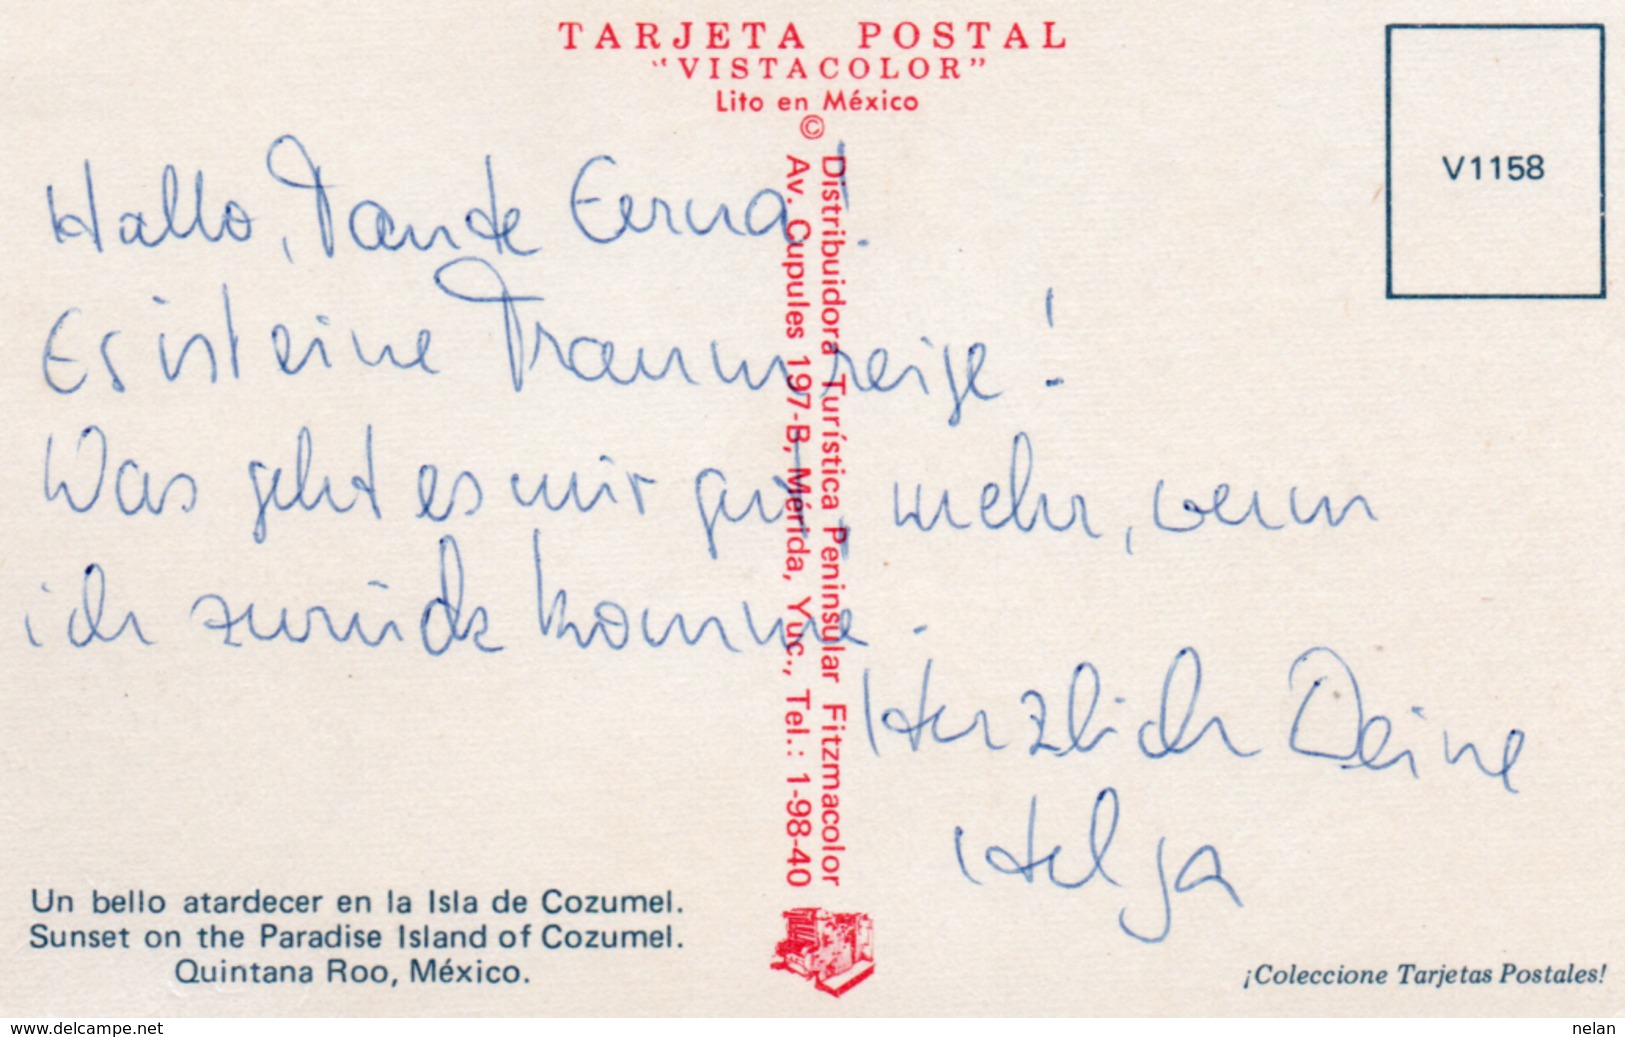 TARJETA POSTAL
"VISTACOLOR"
Lito en México
©
V1158
Distribuidora Turística Peninsular Fitzmacolor
Av. Cupules 197-B, Mérida, Yuc., Tel.: 1-98-40
Hallo, Tante Erna!
Es ist eine Traumreise!
Was geht es mir gut, mehr, wenn
ich zurück komme.
Herzlich Deine
Helga
Un bello atardecer en la Isla de Cozumel.
Sunset on the Paradise Island of Cozumel.
Quintana Roo, México.
¡Coleccione Tarjetas Postales!
www.delcampe.net
nelan